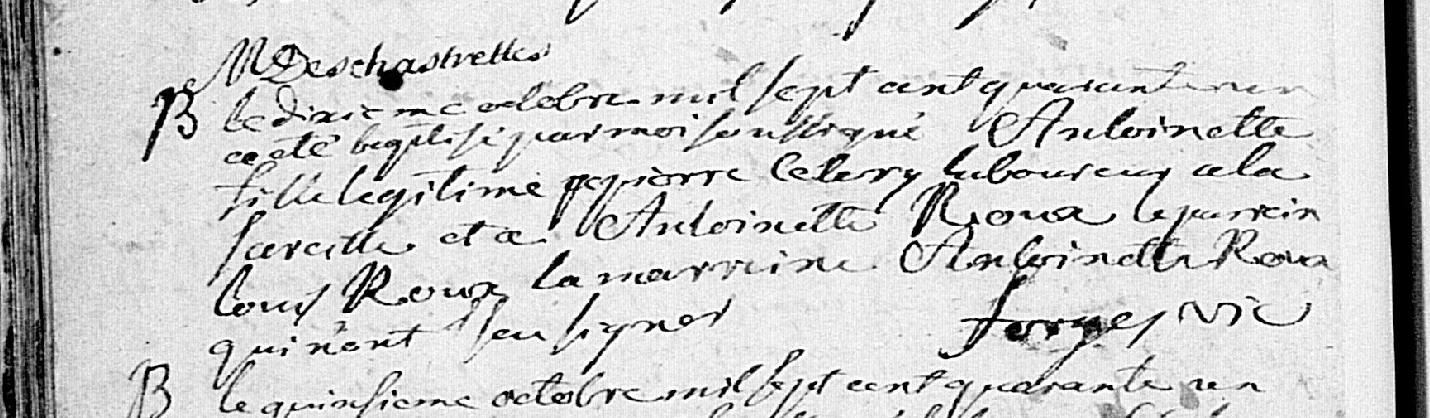 M Deschastrettes
B le dixieme octobre mil sept cent quarante un
a eté baptisé par moi soussigné Antoinette
fille legitime a pierre Celery laboureur a la
farette et a Antoinette Roux le parrein
louis Roux la marreine Antoinette Roux
qui n'ont seu signer forges vic
B le quinsieme octobre mil sept cent quarante un